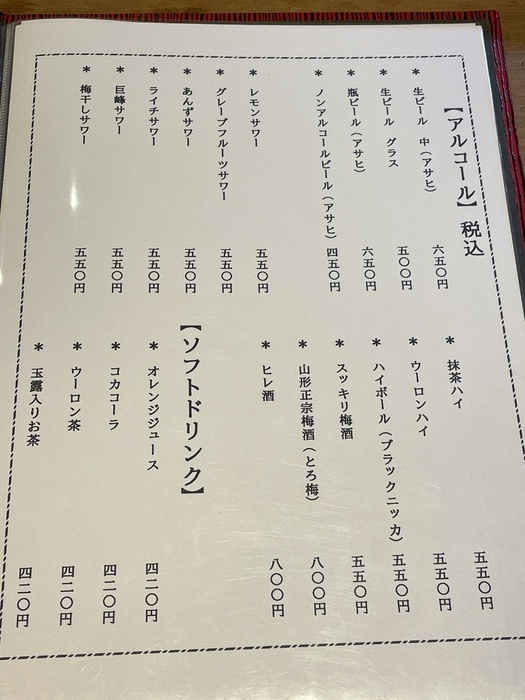 【アルコール】 税込
* 生ビール 中（アサヒ） 六五〇円
* 生ビール グラス 五〇〇円
* 瓶ビール（アサヒ） 六五〇円
* ノンアルコールビール（アサヒ） 四五〇円
* レモンサワー 五五〇円
* グレープフルーツサワー 五五〇円
* あんずサワー 五五〇円
* ライチサワー 五五〇円
* 巨峰サワー 五五〇円
* 梅干しサワー 五五〇円
* 抹茶ハイ 五五〇円
* ウーロンハイ 五五〇円
* ハイボール（ブラックニッカ） 五五〇円
* スッキリ梅酒 五五〇円
* 山形正宗梅酒（とろ梅） 八〇〇円
* ヒレ酒 八〇〇円
【ソフトドリンク】
* オレンジジュース 四二〇円
* コカコーラ 四二〇円
* ウーロン茶 四二〇円
* 玉露入りお茶 四二〇円